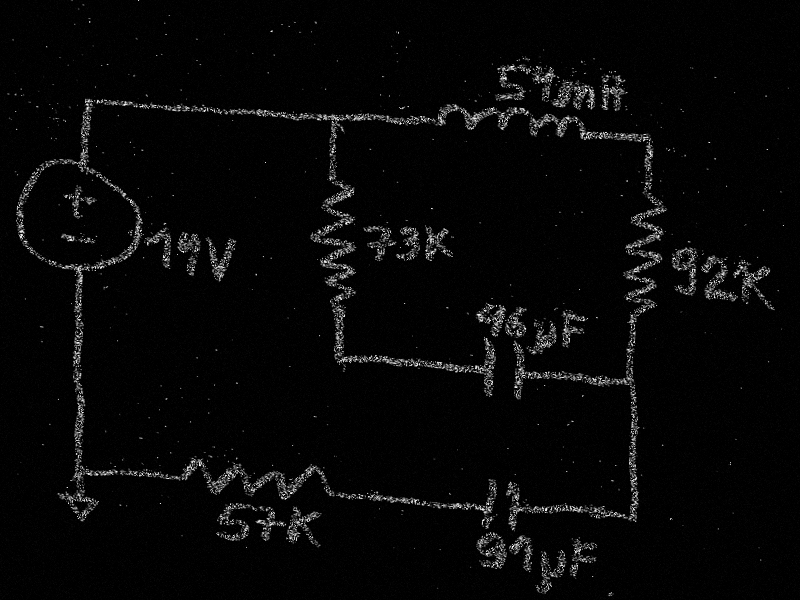 54mH
+
-
14V
73K
92K
46µF
57K
91µF